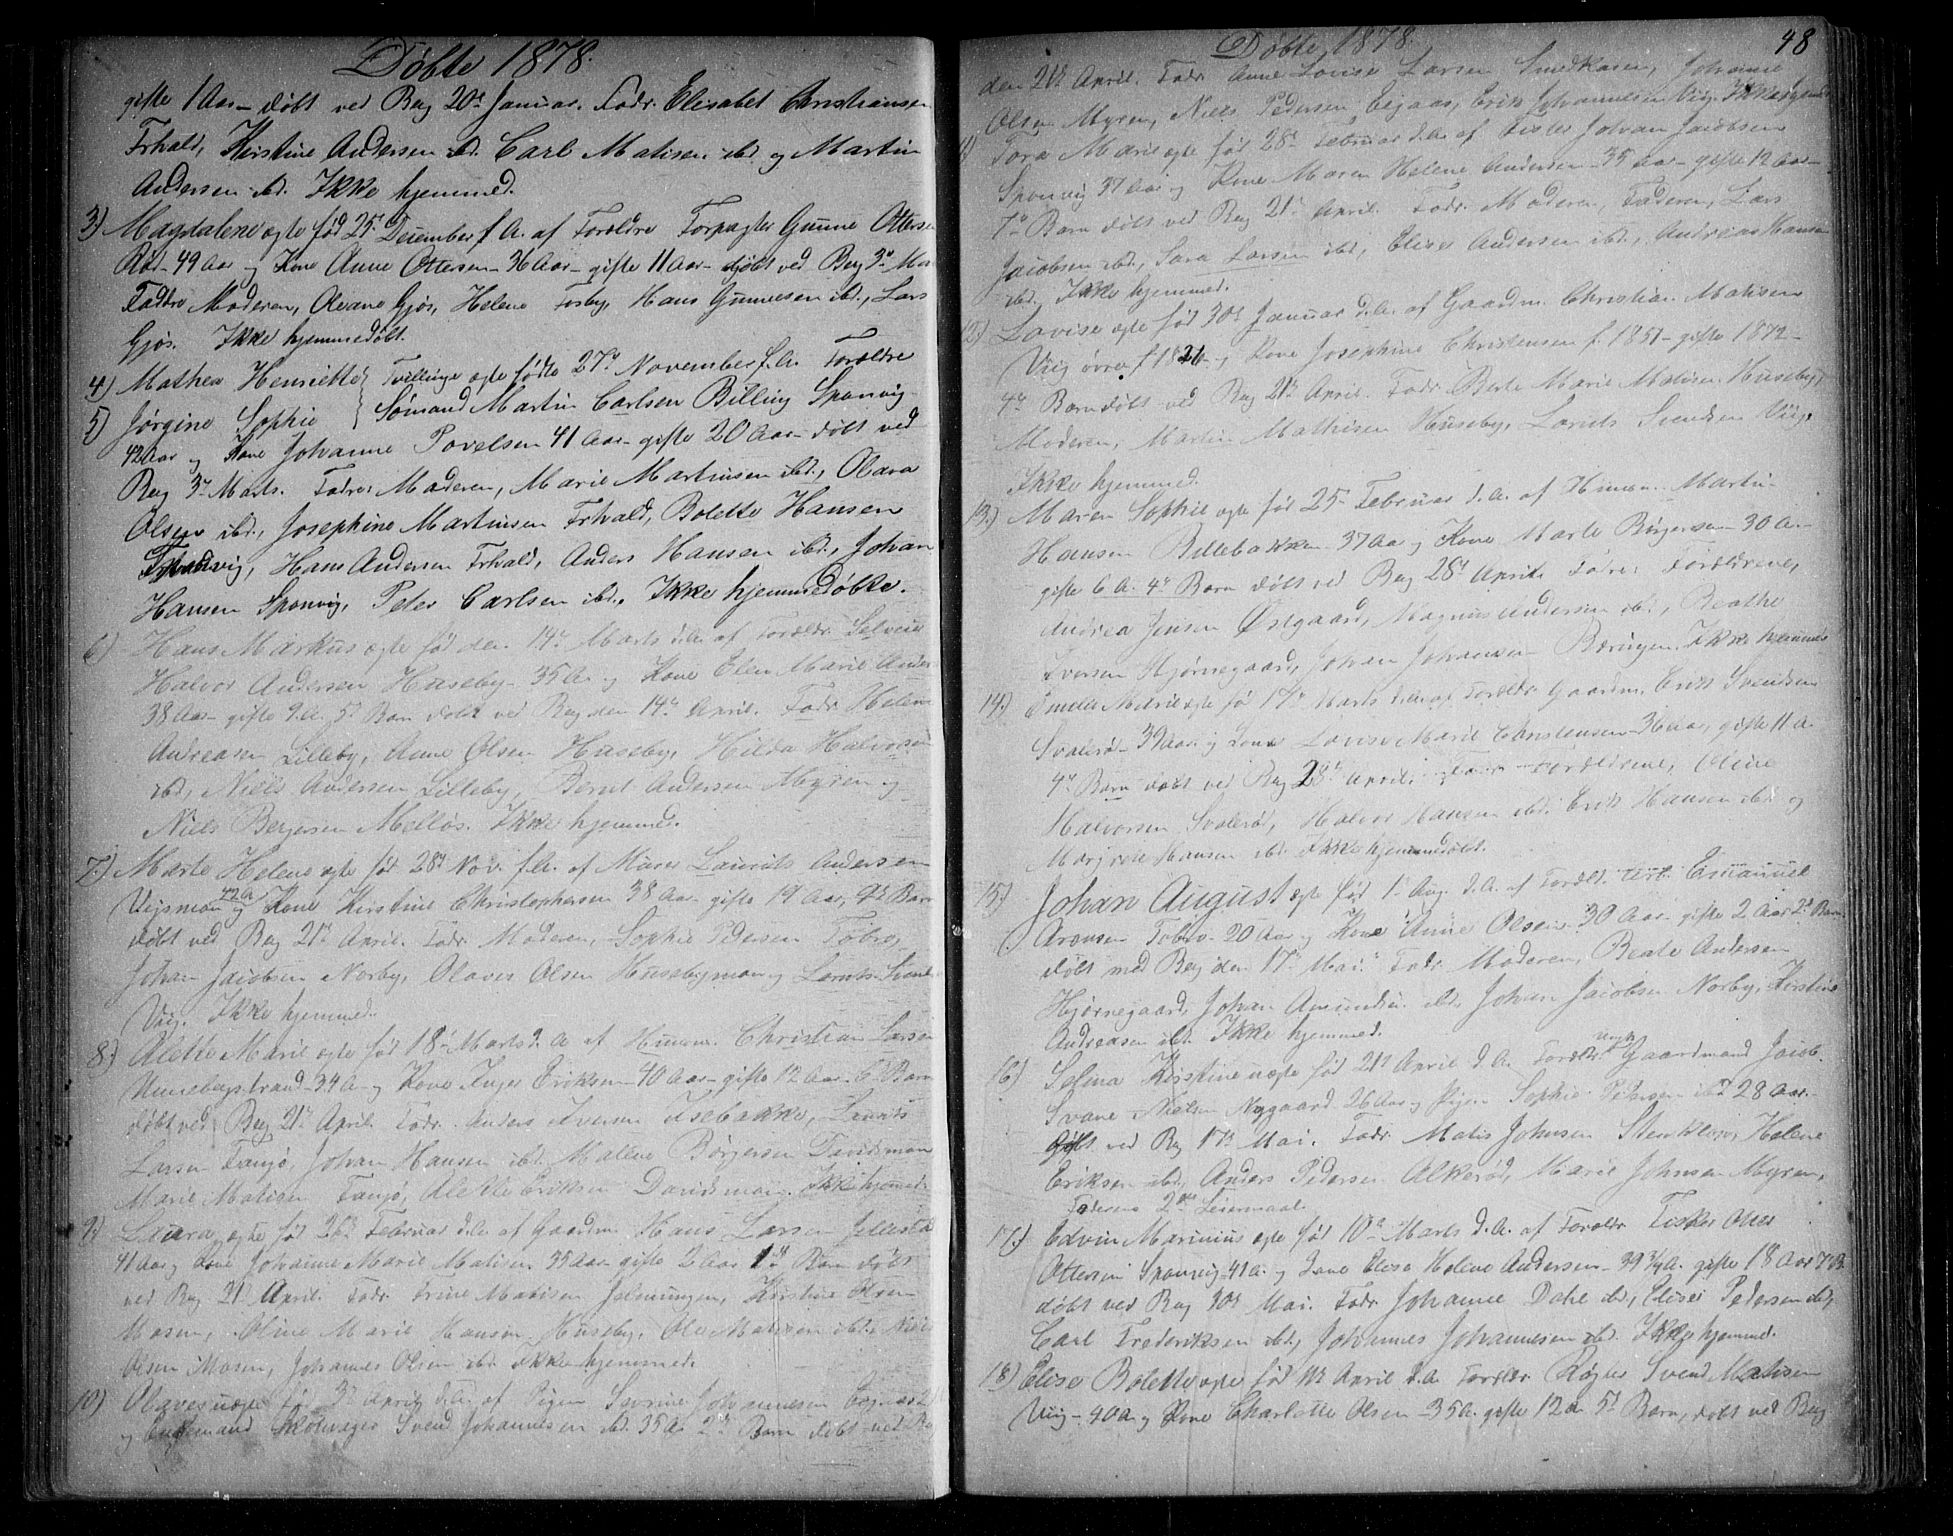 Døbte 1878.
gifte 1 Aar – døbt ved Berg 20de Januar. Fadr. Elisabet Christiansen
Trhald, Kirstine Andersen ibd. Carl Matisen ibd. og Martin
Andersen ibd. Ikke hjemmed.
3) Magdalene ægte fød 25de December f. A. af Forældre Forpagter Gunne Ottersen
Rød – 49 Aar og Kone Anne Ottersen – 36 Aar – gifte 11 Aar – døbt ved Berg 3de Ma
Faddre Moderen, Oleane Gjøs, Helene Torsby, Hans Gunnesen ibd., Lars
Gjøs. Ikke hjemmedøbt.
4) Mathea Henriette } Tvillinge ægte fødte 27de November f. A. Forældre
5) Jørgine Sophie } Sømand Martin Carlsen Billing Sponvig
42 Aar og Kone Johanne Povelsen 41 Aar – gifte 20 Aar – døbt ved
Berg 3de Marts. Fadre: Moderen, Marie Martinsen ibd., Olava
Olsen ibd., Josephine Martinsen Trhald, Bolette Hansen
Hans Andersen Trhald, Anders Hansen ibd., Johan
Hansen Sponvig, Peter Carlsen ibd. Ikke hjemmedøbte.
6) Hans Markus ægte fød den 14de Marts d. A. af Forældr. Selveier
Halvor Andersen Huseby – 35 A. og Kone Elen Marie Ander
38 Aar – gifte 9 A. 5te Barn døbt ved Berg den 14de April. Fadr. Helene
Andreasen Lilleby, Anne Olsen Huseby, Hilda Halvorsen
ibd, Niels Andersen Lilleby, Bernt Andersen Myren og
Niels Bergersen Melløs. Ikke hjemmed.
7.) Marte Helene ægte fød 28de Nov. f. A. af Murer Laurits Andersen
Veismoen 42 A og Kone Kirstine Christophersen 38 Aar gifte 19 Aar, 9de Barn
døbt ved Berg 21de April. Fadr. Moderen, Sophie Pedersen Tobro,
Johan Jacobsen Norby, Olaves Olsen Husebymoen og Lorents Svend
Viig. Ikke hjemmed.
8.) Alette Marie ægte fød 18de Marts d. A. af Husm. Christian Larsen
Unnebergstrand – 34 A. og Kone Inger Eriksen – 40 Aar – gifte 12 Aar – 6te Barn
døbt ved Berg 21de April. Fadr. Anders Iversen Isebakke, Laurits
Larsen Tangø, Johan Hansen ibd. Mallene Børgersen Davidsmoen
Marie Matisen Tangø, Alette Eriksen Davidsmoen. Ikke hjemmed.
9.) Laura ægte fød 26de Februar d. A. af Gaardm. Hans Larsen
41 Aar og Kone Johanne Marie Matisen 35 Aar – gifte 2 Aar 1ste Barn døbt
ved Berg 21 April. Fadr. Trine Matisen Kirstine
Mosen, Oline Marie Hansen Huseby, Ole Matisen ibd., Niels
Olsen Mosen, Johannes Olsen ibd. Ikke hjemmed.
10) Olaves uægte fø 3de April d. A. af Pigen Severine Johannesen
og Svend Johannesen ibd. 35 Aar 2det Barn døbt ved Be
Døbte 1878. 48
den 21de April. Fadr. Anne Lovise Larsen Smedkasen, Johanne
Olsen Myren, Niels Pedersen Erik Johannesen Viig. Ikke hjemmed
11) Tora Marie ægte fød 28de Februar d. A. af Fisker Johan Jacobsen
Sponvig 37 Aar og Kone Maren Helene Andersen – 35 Aar – gifte 12 Aar –
7de Barn døbt ved Berg 21de April. Fadr. Moderen, Faderen, Lars
Jacobsen ibd., Sara Larsen ibd., Elise Andersen ibd., Andreas Hansen
ibd. Ikke hjemmed.
12.) Lovise ægte fød 30te Januar d. A. af Gaardm. Christian Matisen
Viig øvre f. 1821 – og Kone Josephine Christensen f. 1851 – gifte 1872 –
4de Barn døbt ved Berg 21de April. Fadr. Berte Marie Matisen Huseby,
Moderen, Martin Mathisen Huseby, Lorents Svendsen Viig.
Ikke hjemmed.
13.) Maren Sophie ægte fød 25de Februar d. A. af Husm. Martin
Hansen Billebakken 37 Aar og Kone Marte Børgersen – 30 A. –
gifte 6 A. 4de Barn døbt ved Berg 28de April. Fadre: Forældrene,
Andrea Jensen Østgaard, Magnus Andersen ibd, Beathe
Iversen Hjørnegaard, Johan Johansen Ikke hjemmed
14.) Marie ægte fø 17de Marts d. A. af Forældr. Gaardm. Erik Svendsen
Svalerød – 39 Aar og Kone Lovise Marie Christensen – 36 Aar, gifte 11 A.
4de Barn døbt ved Berg 28de April. Fadr. Forældrene, Oline
Halvorsen Svalerød, Halvor Hansen ibd. Erik Hansen ibd og
Margrete Hansen ibd. Ikke hjemmedøbt.
15.) Johan August ægte fød 1ste Aug. d. A. af Forældr. Emanuel
Arensen Tobro – 20 Aar og Kone Anne Olsen – 30 Aar – gifte 2 Aar 2det Barn.
døbt med Berg den 17de Mai. Fadr. Moderen, Beate Andersen
Hjørnegaard, Johan Amundsen ibd., Johan Jacobsen Norby, Kirstine
Andreasen ibd. Ikke hjemmed.
16.) Selma Kirstine uægte fød 21de April d. A. Forældr. Ungk. Gaardmand Jacob
Svane Nielsen Nygaard 26 Aar og Pigen Sophie Pedersen ibd 28 Aar –
døbt ved Berg 17de Mai. Fadr. Matis Johnsen Stenkløv, Helene
Eriksen ibd., Anders Pedersen Alkerød, Marie Johnsen Myren.
Faderens 2det Leiermaal.
17.) Edvin Marinius ægte fød 10de Marts d. A. af Forældr. Fisker Oles
Ottersen Sponvig – 41 A. og Kone Elise Helene Andersen – 39 3/4 A. gifte 18 Aar 7de B.
døbt ved Berg 30te Mai. Fadr. Johanne Dahl ibd., Elise Pedersen ibd,
Carl Frederiksen ibd., Johannes Johannesen ibd. Ikke hjemmed.
18) Elise Bolette ægte fød 11te April d. A. Forældr. Røgter Svend Matisen
Viig – 40 A. og Kone Charlotte Olsen – 35 A. gifte 12 A. 5te Barn, døbt ved Berg